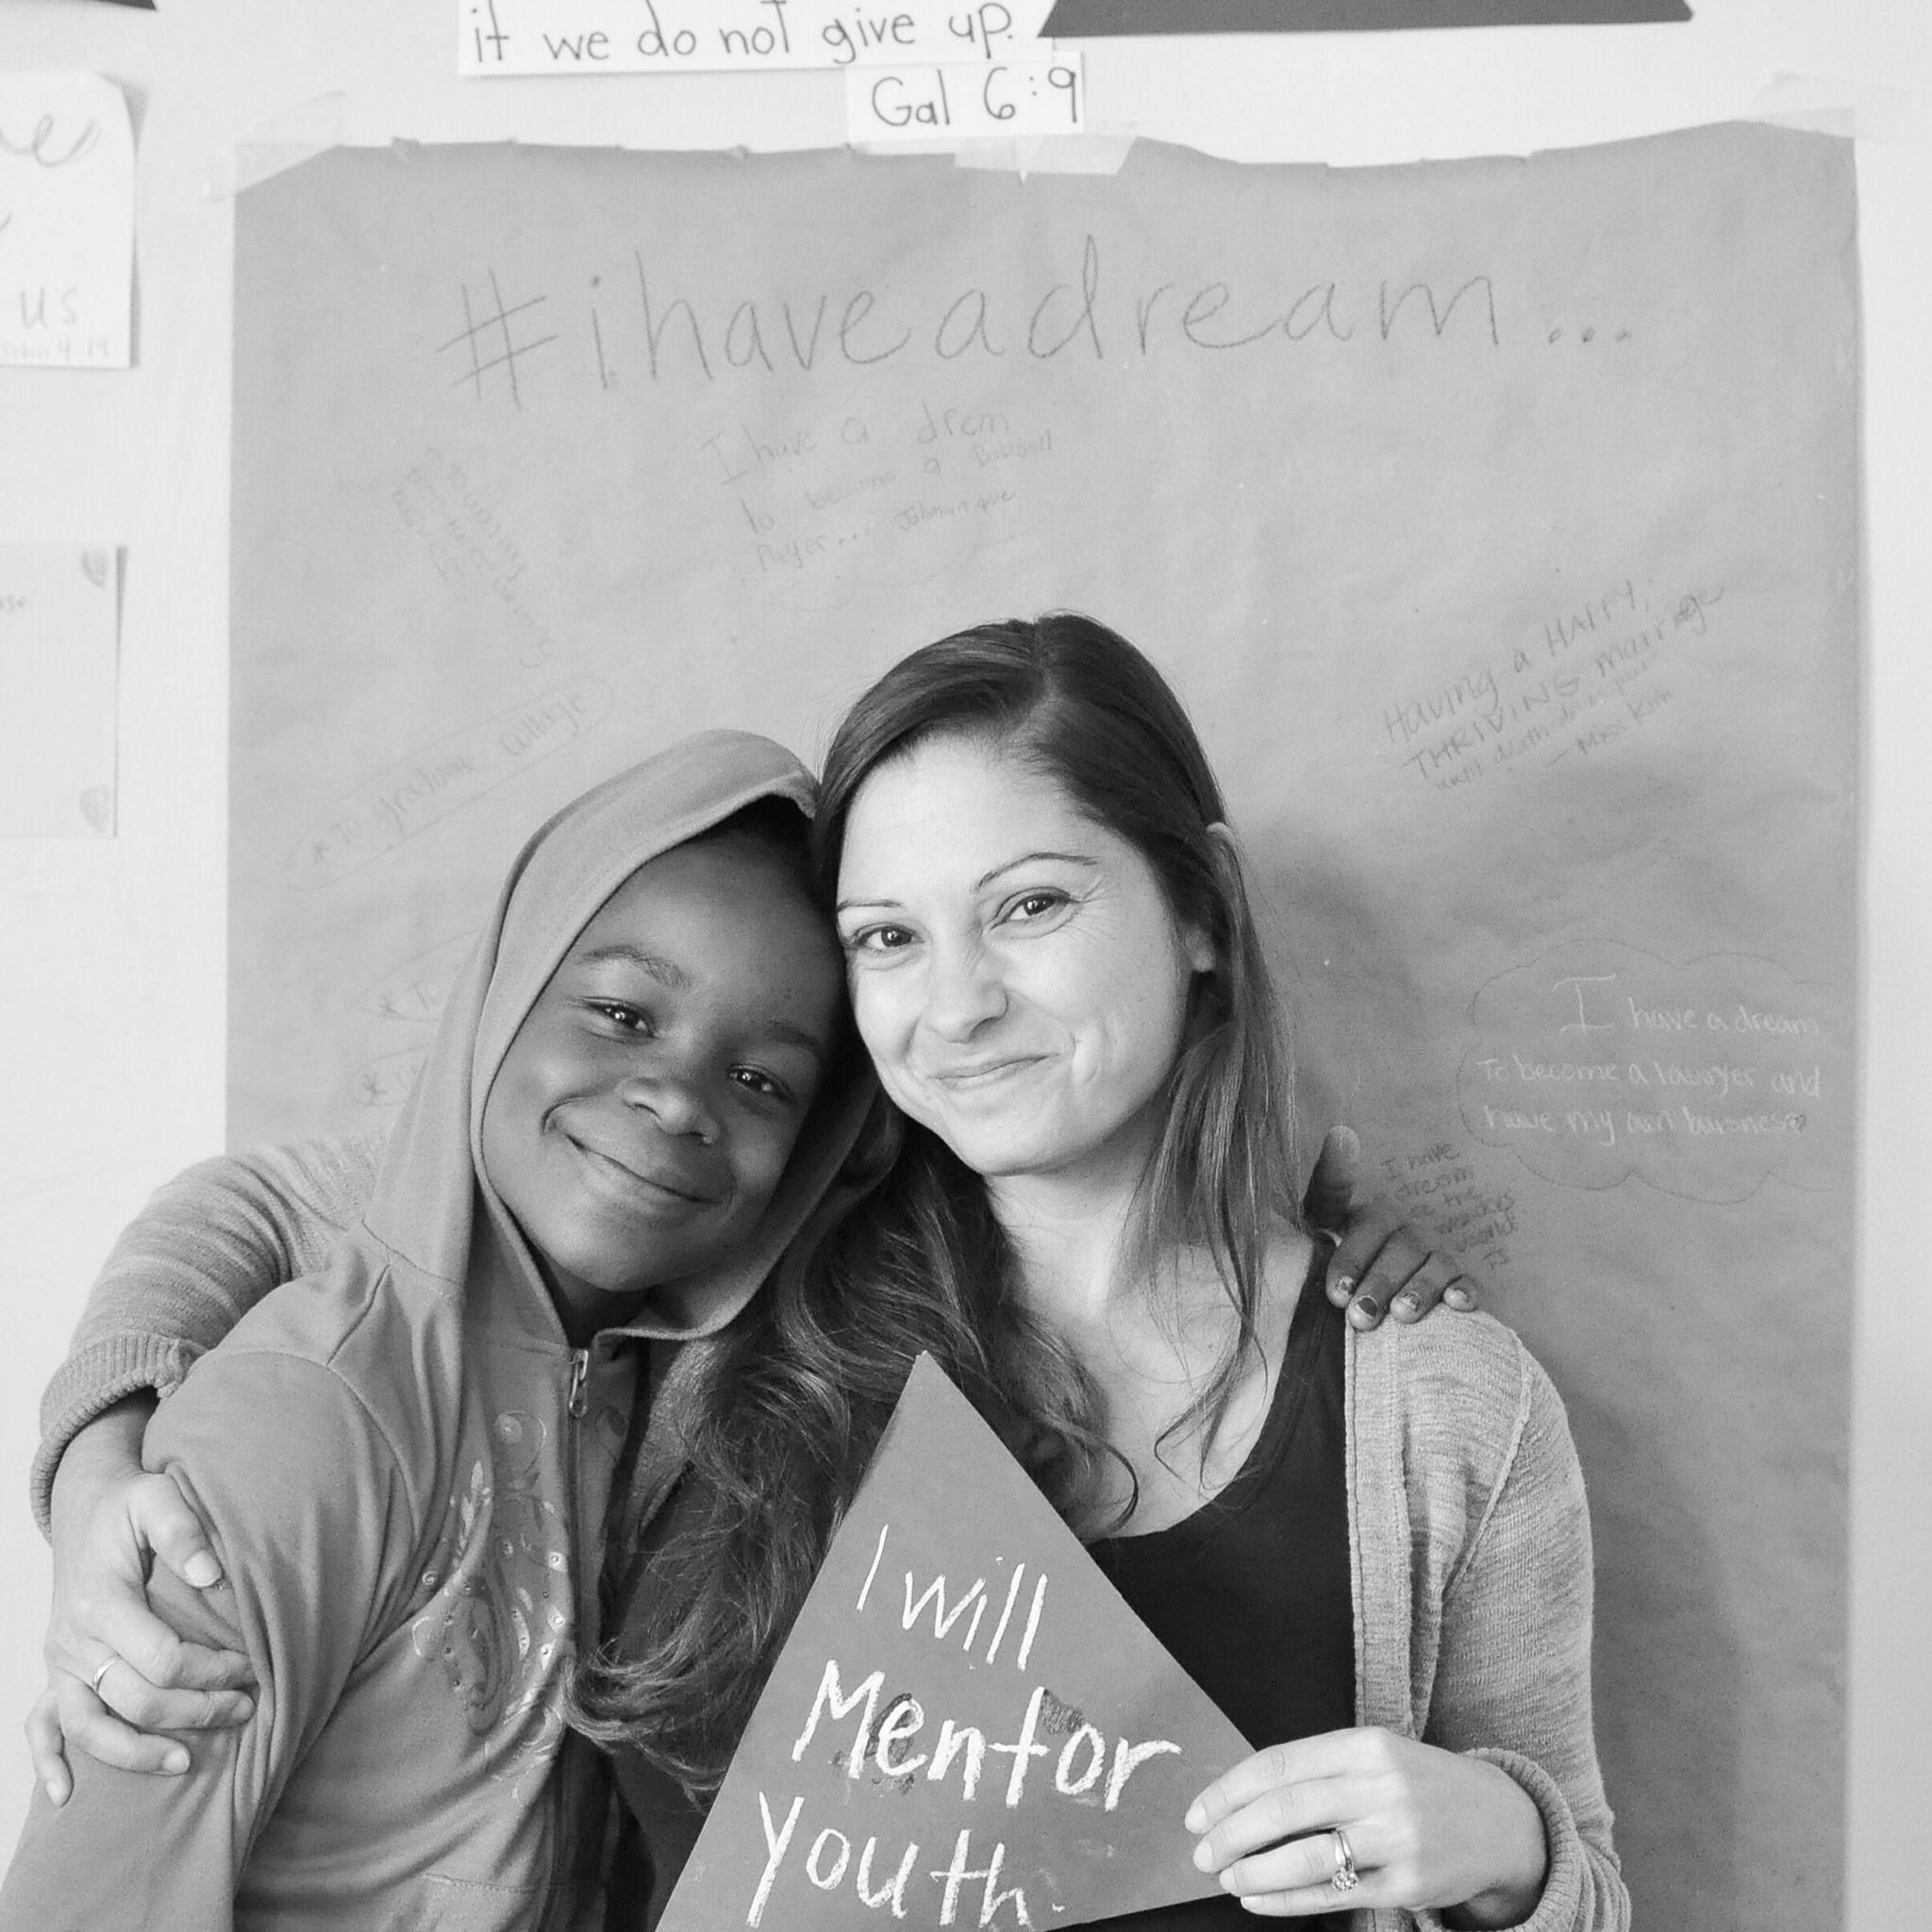 it we do not give up.
Gal 6:9
us
John 4:19
#ihaveadream...
I have a drem
to become a
Player...
Having a HAPPY,
THRIVING marriage
until death do us part
- Mrs. Kim
* To graduate college
I have a dream
To become a lawyer and
have my own buisness
I have
dream
see the
wonders
world
I will
Mentor
Youth.